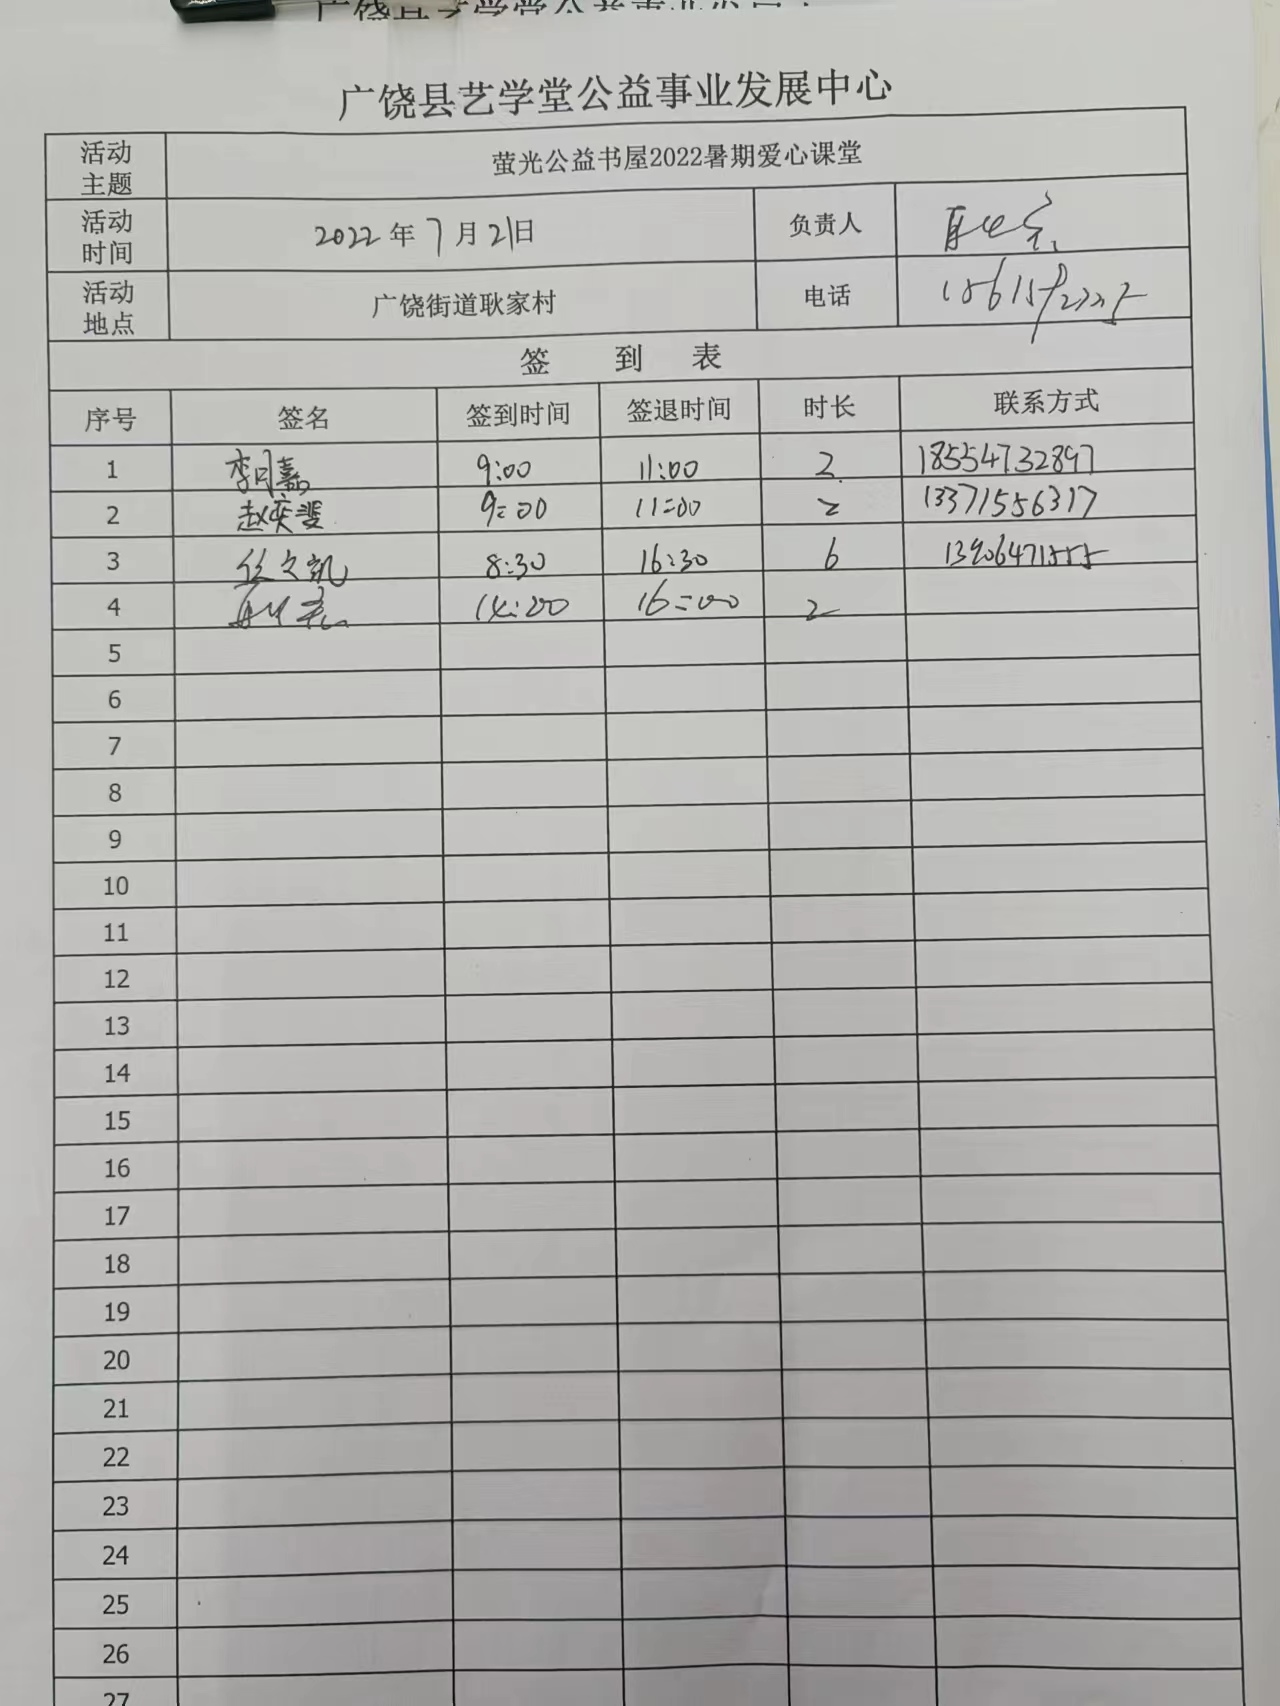 广饶县艺学堂公益事业发展中心
活动主题 萤光公益书屋2022暑期爱心课堂
活动时间 2022年7月21日 负责人
活动地点 广饶街道耿家村 电话
签到表
序号 签名 签到时间 签退时间 时长 联系方式
1 李月嘉 9:00 11:00 2 18554732897
2 赵奕斐 9:00 11:00 2 13371556317
3 任文凯 8:30 16:30 6 13906471555
4 14:00 16:00 2
5
6
7
8
9
10
11
12
13
14
15
16
17
18
19
20
21
22
23
24
25
26
27